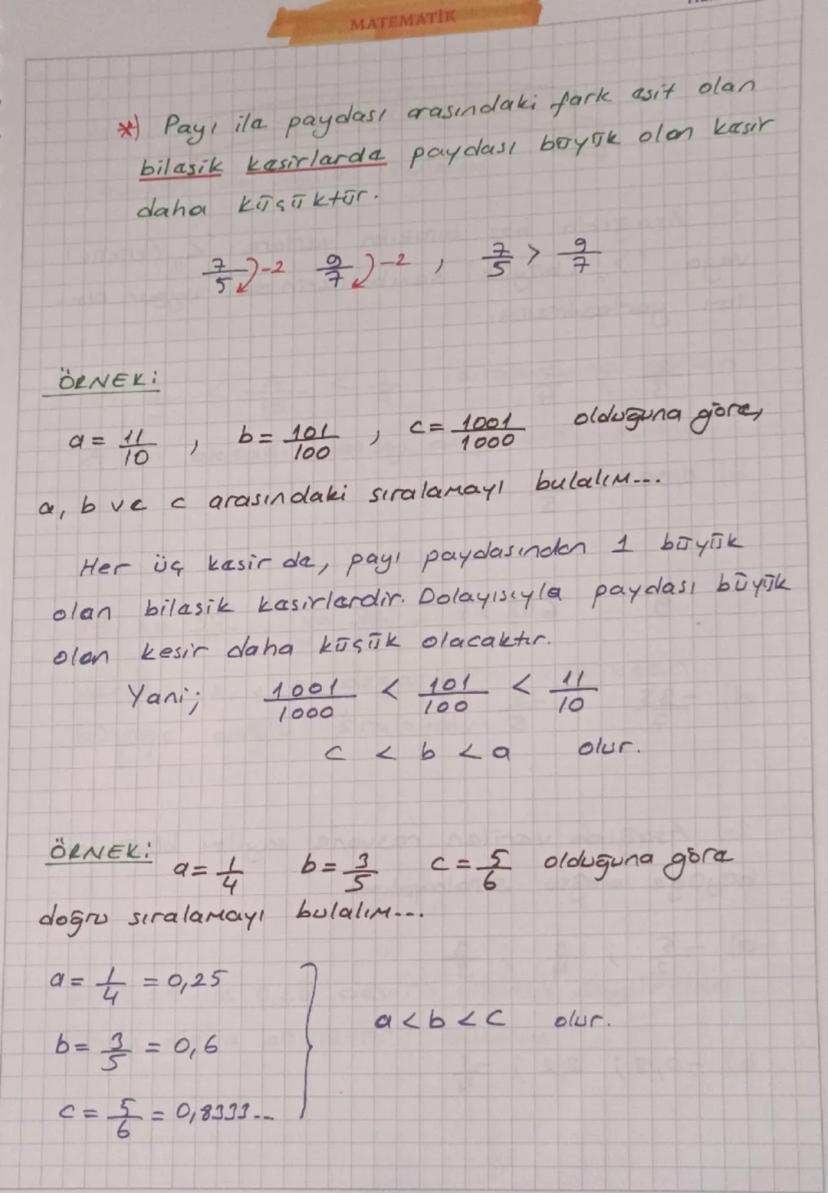 MATEMATİK
*) Payı ile paydası arasındaki fark eşit olan
bileşik kesirlerde paydası büyük olan kesir
daha küçüktür.
7/5 )-2 9/7 )-2 , 7/5 > 9/7
ÖRNEK:
a = 11/10 , b = 101/100 , c = 1001/1000 olduğuna göre,
a, b ve c arasındaki sıralamayı bulalım...
Her üç kesir de, payı paydasından 1 büyük
olan bileşik kesirlerdir. Dolayısıyla paydası büyük
olan kesir daha küçük olacaktır.
Yani; 1001/1000 < 101/100 < 11/10
c < b < a olur.
ÖRNEK: a = 1/4 b = 3/5 c = 5/6 olduğuna göre
doğru sıralamayı bulalım...
a = 1/4 = 0,25
a < b < c olur.
b = 3/5 = 0,6
c = 5/6 = 0,8333...